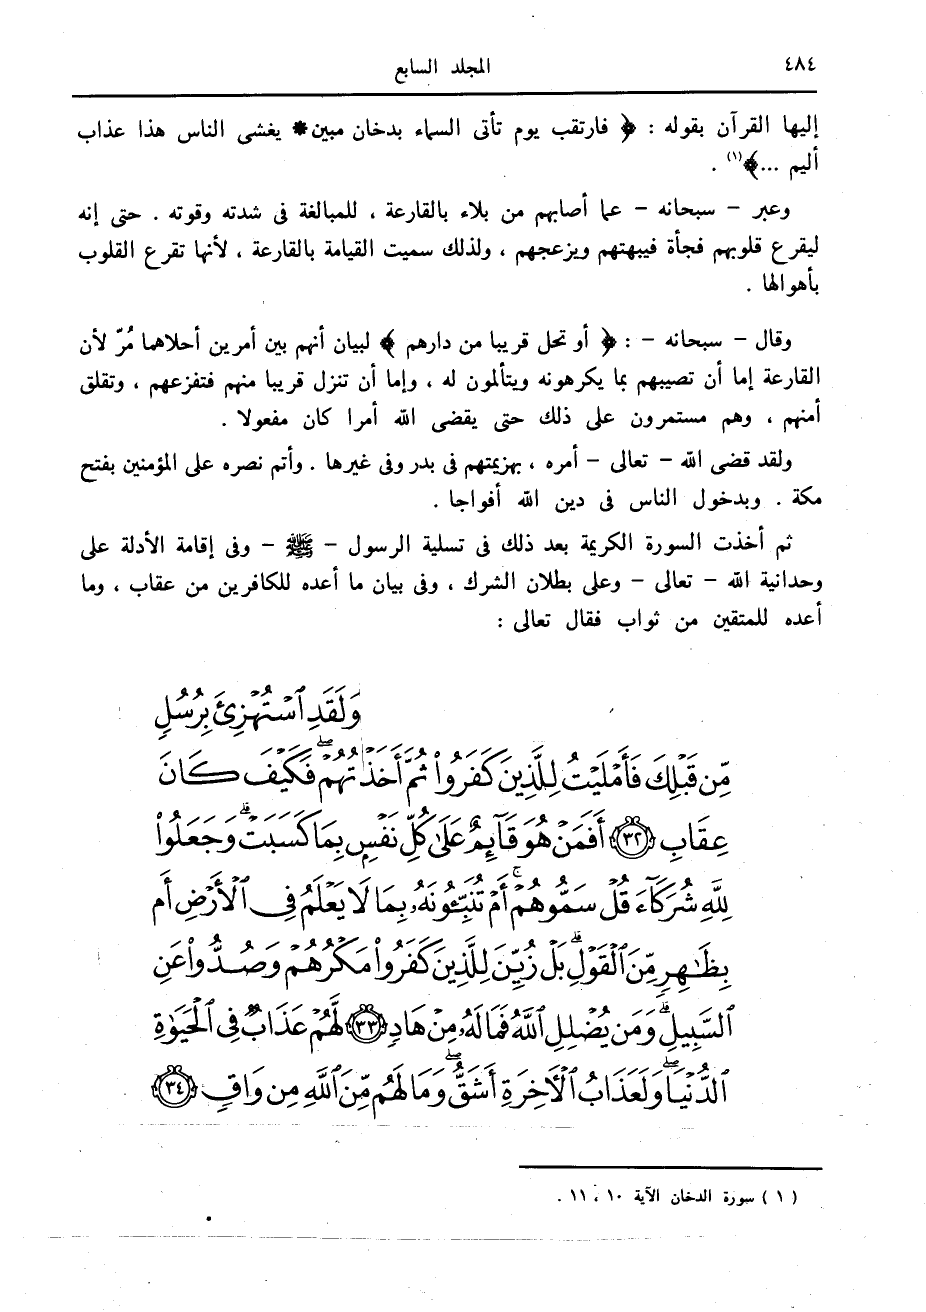 ٤٨٤
المجلد السابع
إليها القرآن بقوله : ﴿ فارتقب يوم تأتى السماء بدخان مبين* يغشى الناس هذا عذاب
أليم ...﴾(١) .
وعبر – سبحانه – عما أصابهم من بلاء بالقارعة ، للمبالغة فى شدته وقوته . حتى إنه
ليقرع قلوبهم فجأة فيبهتهم ويزعجهم ، ولذلك سميت القيامة بالقارعة ، لأنها تقرع القلوب
بأهوالها .
وقال – سبحانه – : ﴿ أو تحل قريبا من دارهم ﴾ لبيان أنهم بين أمرين أحلاهما مُرّ لأن
القارعة إما أن تصيبهم بما يكرهونه ويتألمون له ، وإما أن تنزل قريبا منهم فتفزعهم ، وتقلق
أمنهم ، وهم مستمرون على ذلك حتى يقضى الله أمرا كان مفعولا .
ولقد قضى الله – تعالى – أمره ، بهزيمتهم فى بدر وفى غيرها . وأتم نصره على المؤمنين بفتح
مكة . وبدخول الناس فى دين الله أفواجا .
ثم أخذت السورة الكريمة بعد ذلك فى تسلية الرسول – ﷺ – وفى إقامة الأدلة على
وحدانية الله – تعالى – وعلى بطلان الشرك ، وفى بيان ما أعده للكافرين من عقاب ، وما
أعده للمتقين من ثواب فقال تعالى :
وَلَقَدِ ٱسْتُهْزِئَ بِرُسُلٍ
مِّن قَبْلِكَ فَأَمْلَيْتُ لِلَّذِينَ كَفَرُوا۟ ثُمَّ أَخَذْتُهُمْ ۖ فَكَيْفَ كَانَ
عِقَابِ ﴿٣٢﴾ أَفَمَنْ هُوَ قَآئِمٌ عَلَىٰ كُلِّ نَفْسٍۭ بِمَا كَسَبَتْ ۗ وَجَعَلُوا۟
لِلَّهِ شُرَكَآءَ قُلْ سَمُّوهُمْ ۚ أَمْ تُنَبِّـُٔونَهُۥ بِمَا لَا يَعْلَمُ فِى ٱلْأَرْضِ أَم
بِظَٰهِرٍ مِّنَ ٱلْقَوْلِ ۗ بَلْ زُيِّنَ لِلَّذِينَ كَفَرُوا۟ مَكْرُهُمْ وَصُدُّوا۟ عَنِ
ٱلسَّبِيلِ ۗ وَمَن يُضْلِلِ ٱللَّهُ فَمَا لَهُۥ مِنْ هَادٍ ﴿٣٣﴾ لَّهُمْ عَذَابٌ فِى ٱلْحَيَوٰةِ
ٱلدُّنْيَا ۖ وَلَعَذَابُ ٱلْءَاخِرَةِ أَشَقُّ ۖ وَمَا لَهُم مِّنَ ٱللَّهِ مِن وَاقٍ ﴿٣٤﴾
(١) سورة الدخان الآية ١٠ ، ١١ .